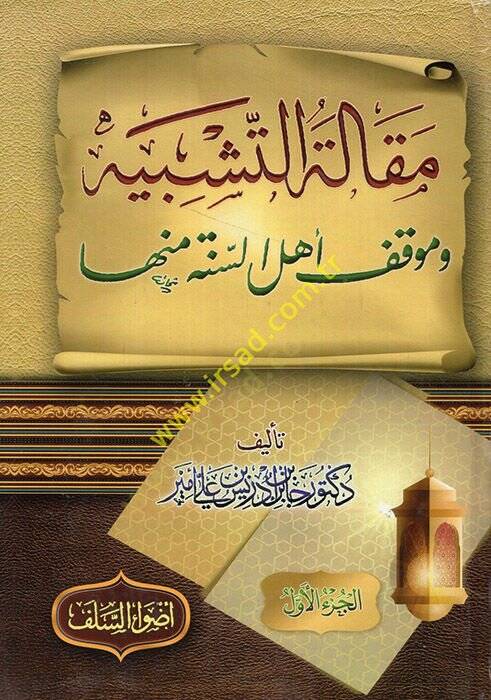 مقالة التشبيه
وموقف أهل السنة منها
www.irsad.com.tr
تأليف
دكتور جابر بن إدريس بن علي أمير
الجزء الأول
أضواء السلف